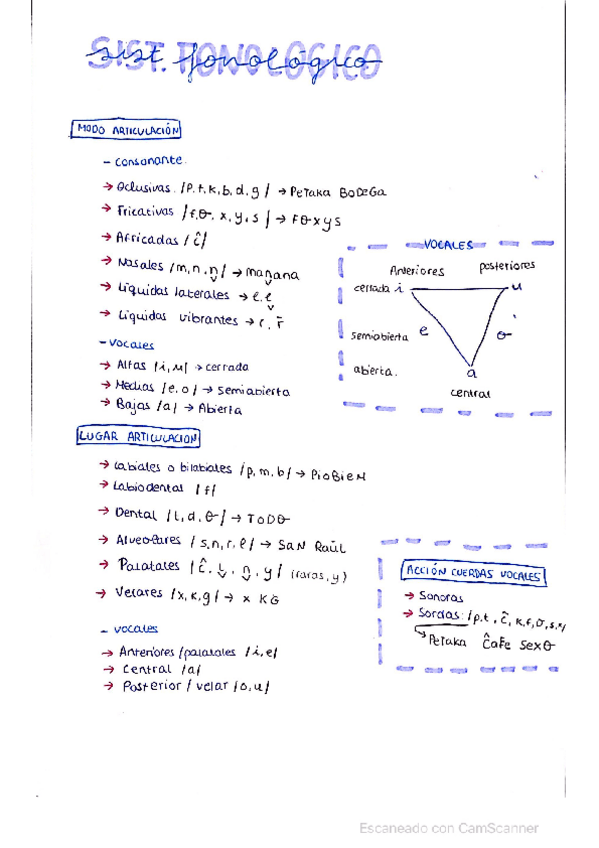 SIST. FONOLÓGICO
sist. fonológico
MODO ARTICULACIÓN
- consonante.
→ Oclusivas /p,t,k,b,d,g/ → PeTaKa BoDeGa
→ Fricativas /f,θ,x,y,s/ → Fθxys
→ Africadas /ĉ/
→ Nasales /m,n,n̬/ → mañana
→ Líquidas laterales → l, l̬
→ Líquidas vibrantes → r, r̄
- vocales
→ Altas /i,u/ → cerrada
→ Medias /e,o/ → semiabierta
→ Bajas /a/ → Abierta
VOCALES
Anteriores posteriores
cerrada i u
semiabierta e o
abierta. a
central
LUGAR ARTICULACION
→ Labiales o bilabiales /p,m,b/ → PioBieM
→ Labiodental /f/
→ Dental /t,d,θ/ → ToDθ
→ Alveolares /s,n,r,l/ → SaN Raül
→ Palatales /ĉ, l̬, n̬, y/ (raros, y)
→ Velares /x,k,g/ → x KG
- vocales
→ Anteriores /palatales /i,e/
→ Central /a/
→ Posterior / velar /o,u/
ACCIÓN CUERDAS VOCALES
→ Sonoras
→ Sordas: /p,t,ĉ,k,f,θ,s,x/
Petaka ĈaFe Sexθ
Escaneado con CamScanner